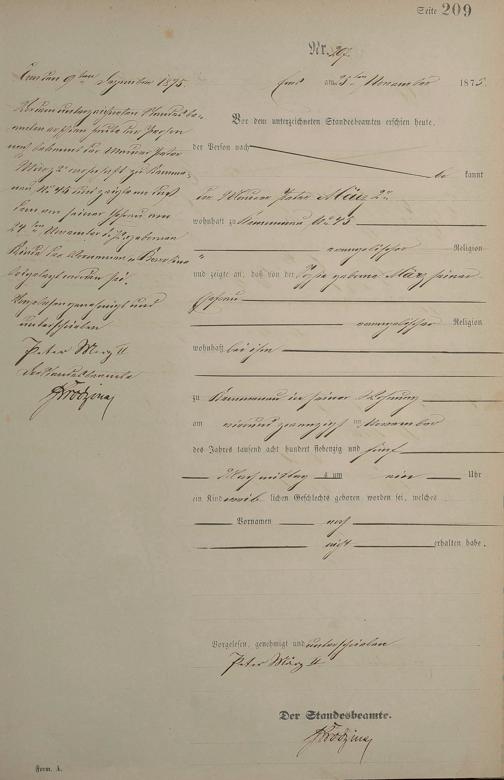 Seite 209
Nr. 29.
Ems am 25ten November 1875
Vor dem unterzeichneten Standesbeamten erschien heute,
der Person nach be kannt
der Maurer Peter März 2r
wohnhaft zu Kemmenau No 45
evangelischer Religion
und zeigte an, daß von der geborne März seiner
Ehefrau
evangelischer Religion
wohnhaft bei ihm
zu Kemmenau in seiner Wohnung
am vierundzwanzigsten November
des Jahres tausend acht hundert siebenzig und fünf
Nachmittag s um ein Uhr
ein Kind weib lichen Geschlechts geboren worden sei, welches
Vornamen noch
nicht erhalten habe.
Vorgelesen, genehmigt und unterschrieben
Peter März II
Der Standesbeamte.
Ems den 9ten Dezember 1875.
Vor dem unterzeichneten Standesbe-
amten erschien heute der Person
nach bekannt der Maurer Peter
März 2r wohnhaft zu Kemme-
nau No 45 und zeigte an daß
dem von seiner Ehefrau am
24ten November d. J. geborenen
Kinde die Vornamen
beigelegt worden sei.
Vorgelesen genehmigt und
unterschrieben
Peter März II
Der Standesbeamte
Form. A.